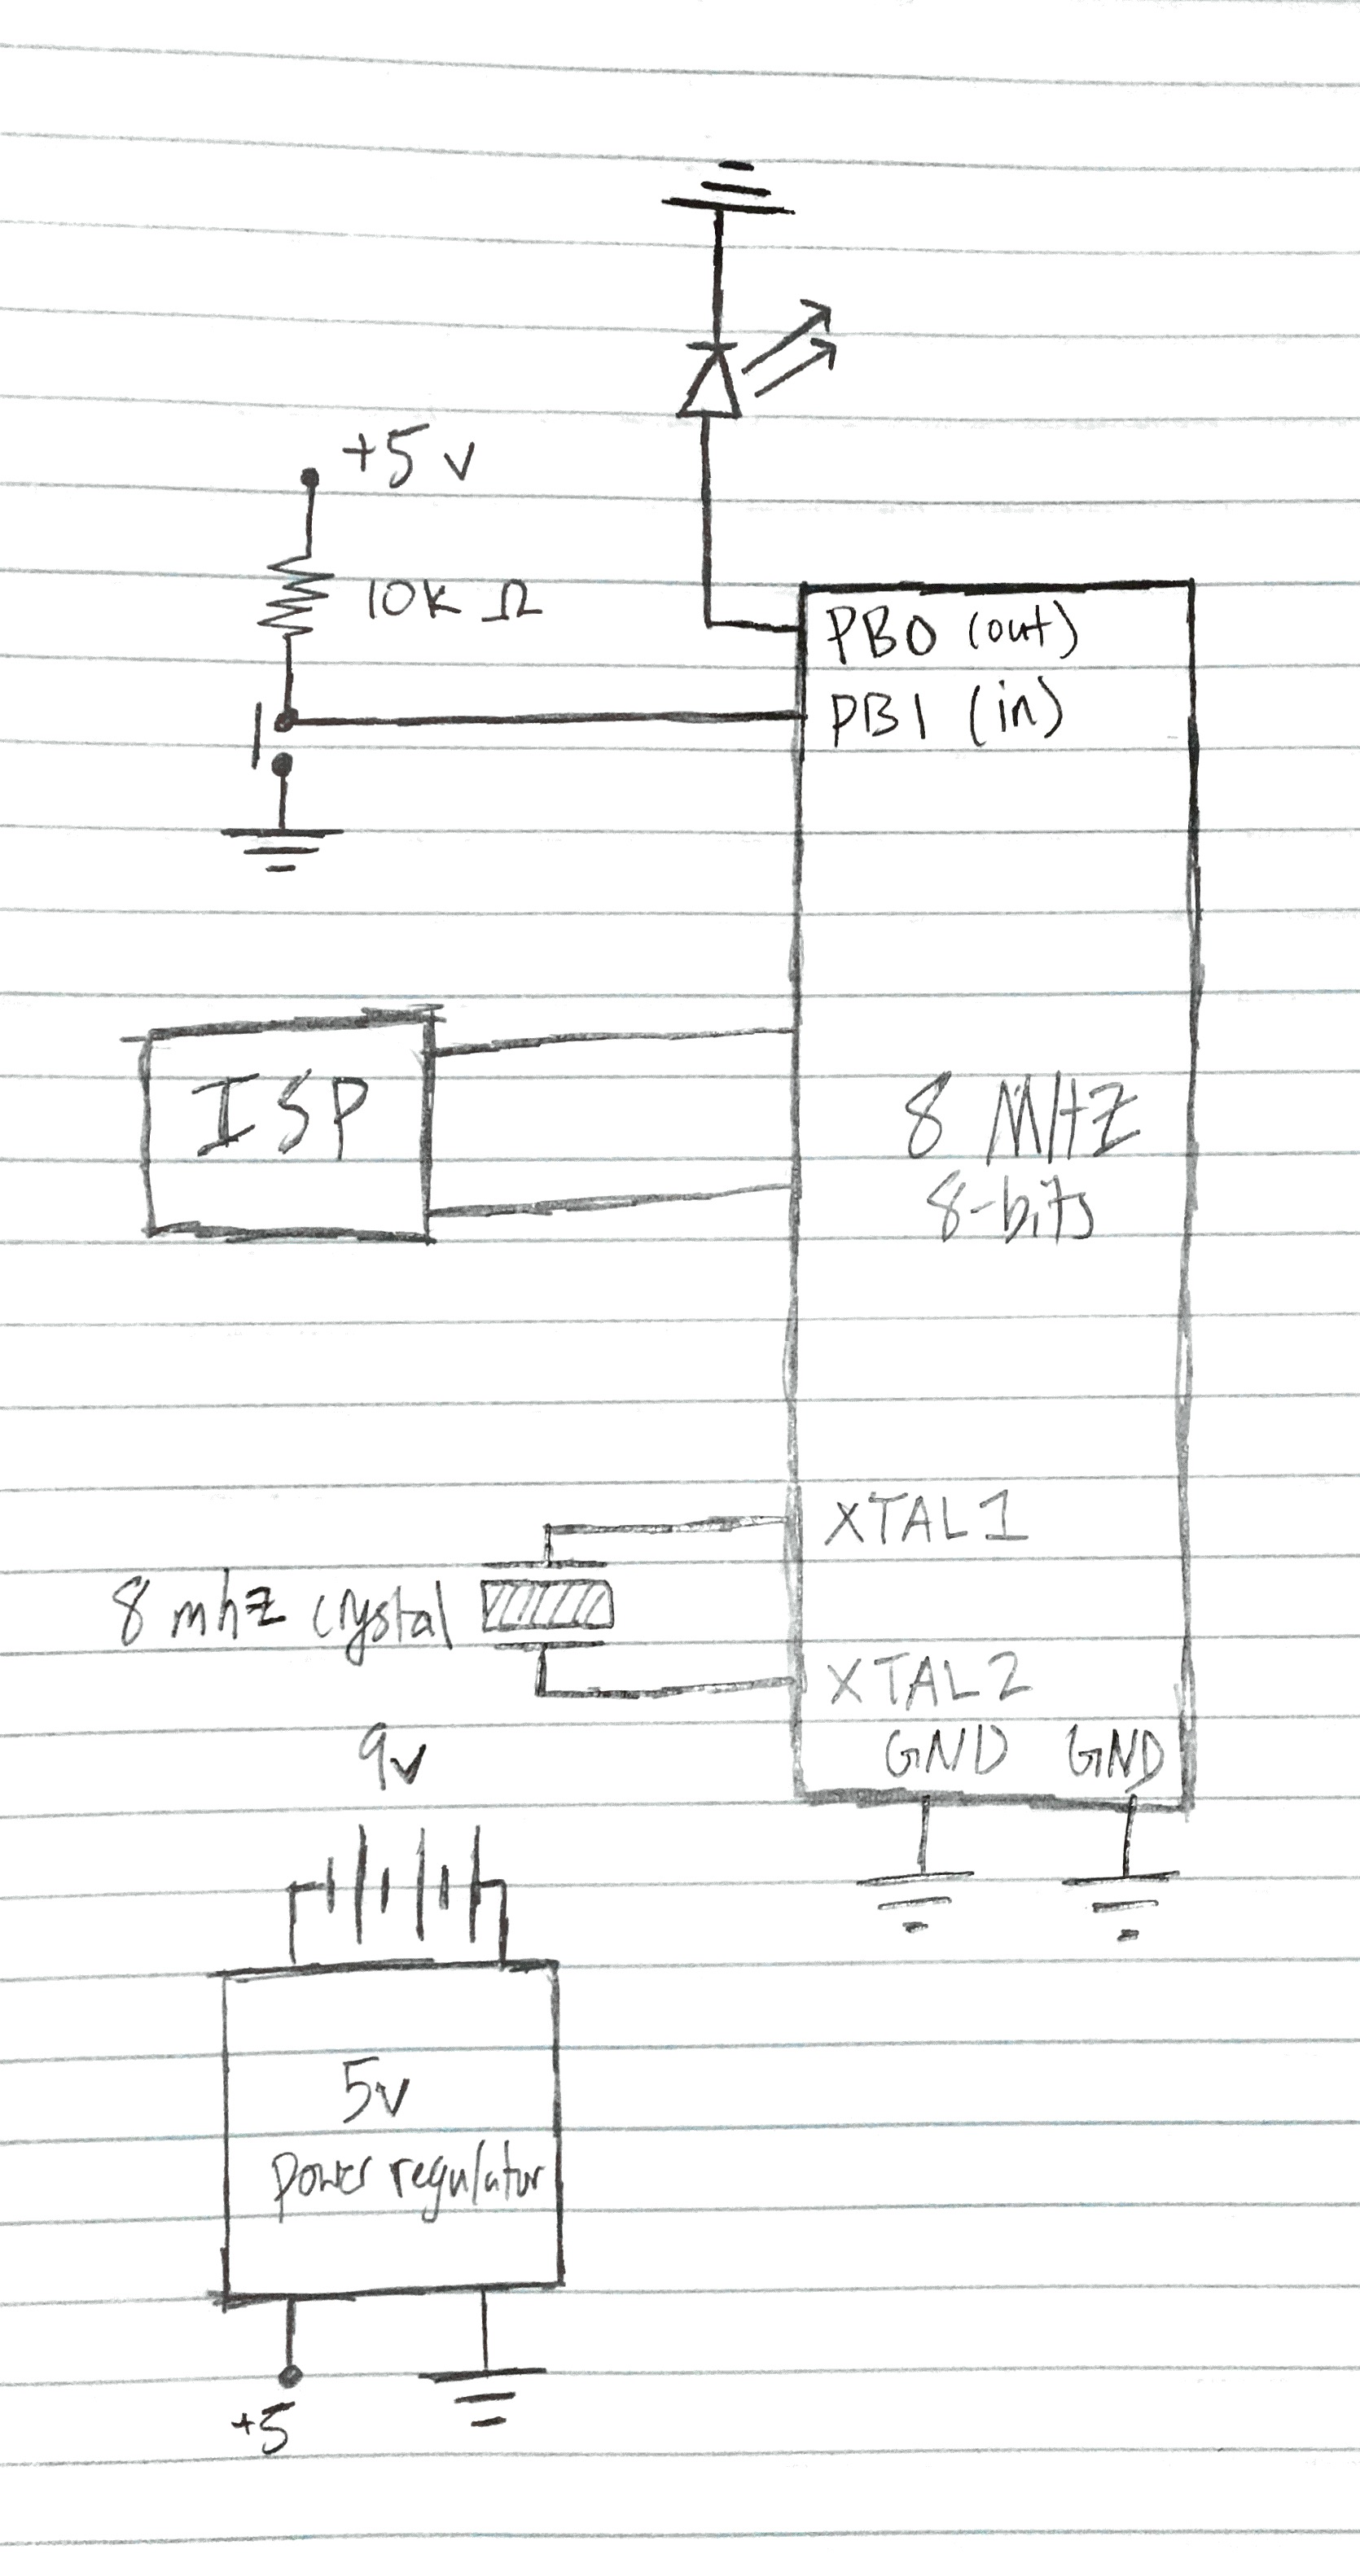 +5 v
10K Ω
PB0 (out)
PB1 (in)
ISP
8 MHZ
8-bits
XTAL1
8 mhz crystal
XTAL2
GND GND
9v
5v
power regulator
+5